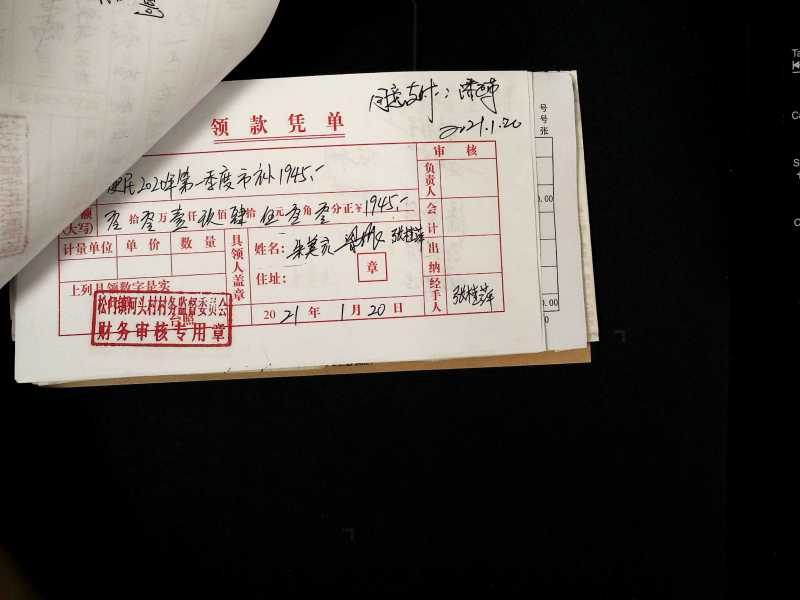 同意支付：
2021.1.20
领款凭单
审核
便民2020年第一季度市补1945.-
负责人
额(大写) 零拾零万壹仟玖佰肆拾伍元零角零分正￥1945.-
会计
计量单位 单价 数量
具领人盖章
姓名： 张桂萍
出纳
住址：
章
上列具领数字是实
经手人 张桂萍
台照
2021年1月20日
财务审核专用章
号
号
张
0.00
0.00
0